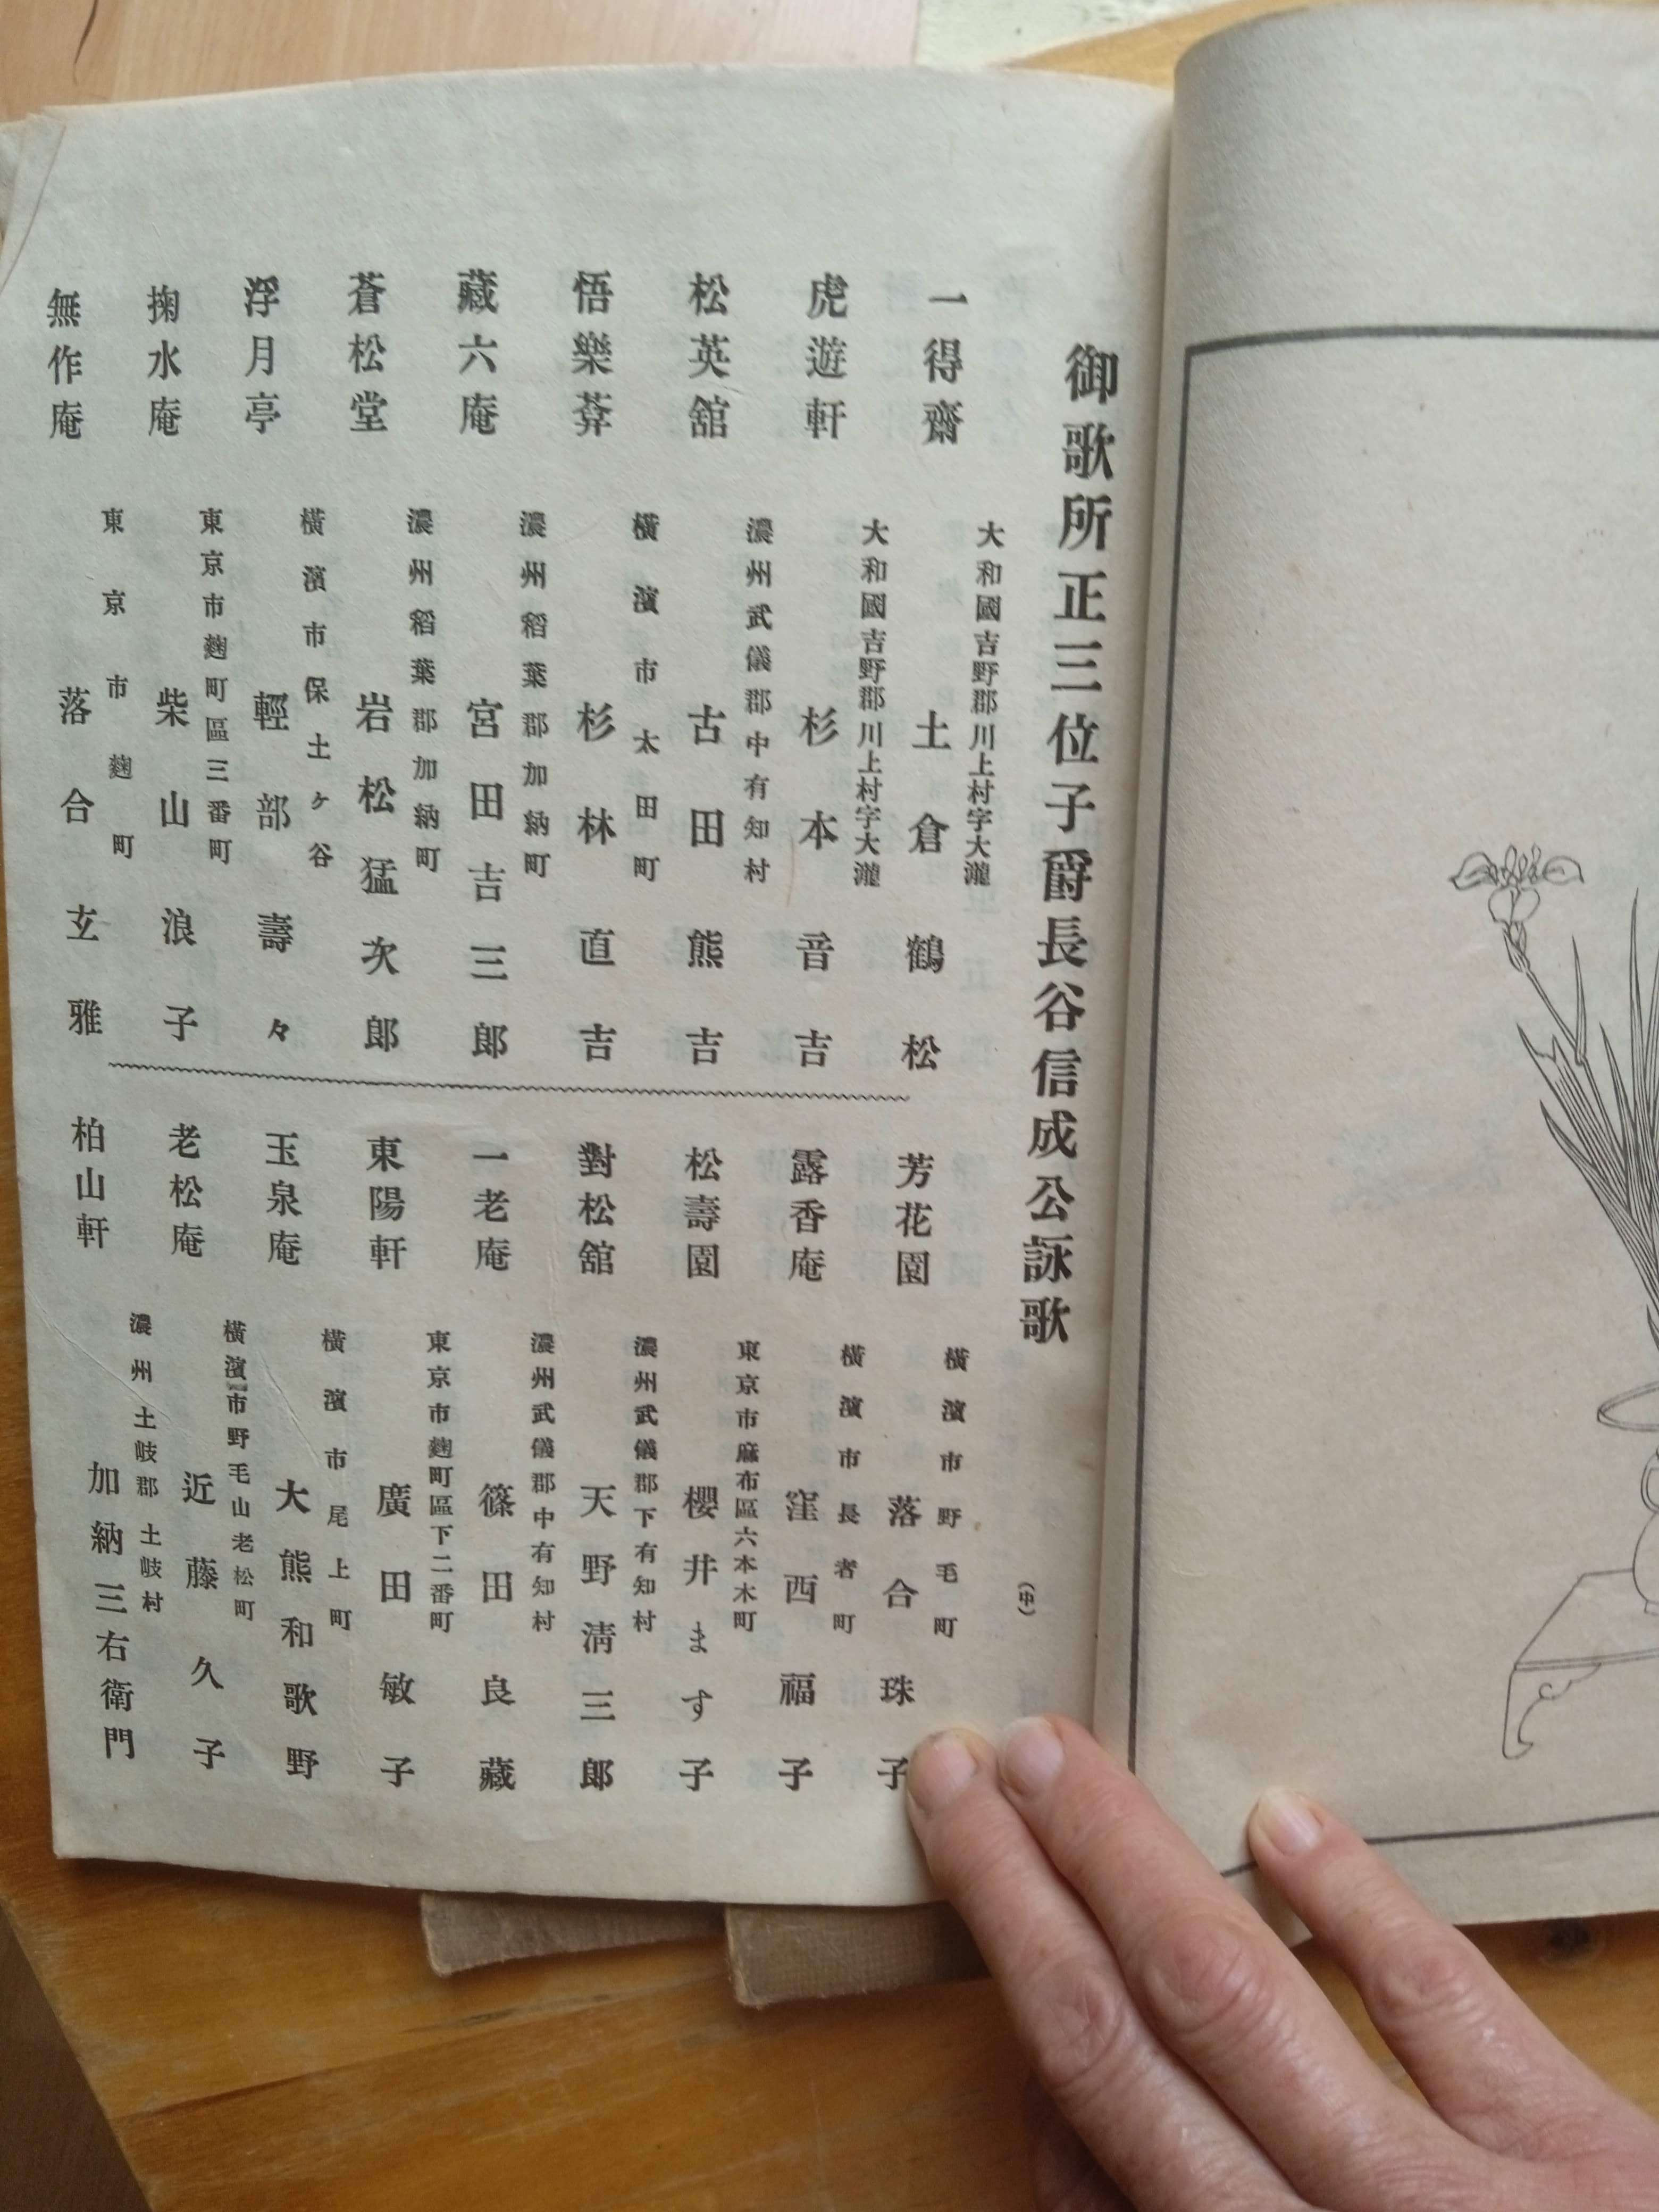 御歌所正三位子爵長谷信成公詠歌
(中)
一得齋
大和國吉野郡川上村字大瀧
土倉鶴松
虎遊軒
大和國吉野郡川上村字大瀧
杉本音吉
松英舘
濃州武儀郡中有知村
古田熊吉
悟樂莽
橫濱市太田町
杉林直吉
藏六庵
濃州稻葉郡加納町
宮田吉三郎
蒼松堂
濃州稻葉郡加納町
岩松猛次郎
浮月亭
橫濱市保土ケ谷
輕部壽々
掬水庵
東京市麴町區三番町
柴山浪子
無作庵
東京市麴町
落合玄雅
芳花園
橫濱市野毛町
落合珠子
露香庵
橫濱市長者町
窪西福子
松壽園
東京市麻布區六本木町
櫻井ます子
對松舘
濃州武儀郡下有知村
天野淸三郎
一老庵
濃州武儀郡中有知村
篠田良藏
東陽軒
東京市麴町區下二番町
廣田敏子
玉泉庵
橫濱市尾上町
大熊和歌野
老松庵
橫濱市野毛山老松町
近藤久子
柏山軒
濃州土岐郡土岐村
加納三右衛門